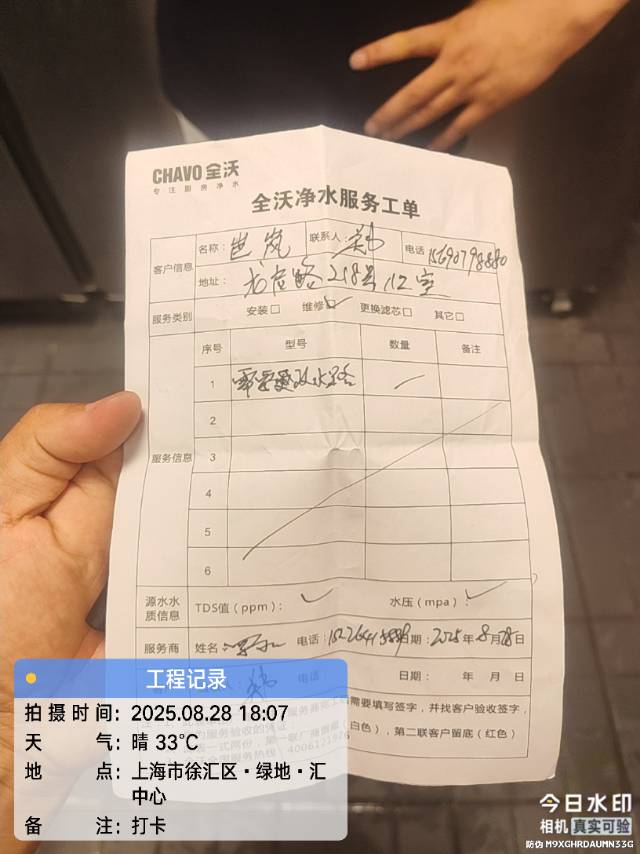 CHAVO 全沃
专注厨房净水
全沃净水服务工单
客户信息 名称： 联系人： 电话 15690798880
地址： 龙启路218号 112室
服务类别 安装□ 维修☑ 更换滤芯□ 其它□
服务信息 序号 型号 数量 备注
1
2
3
4
5
6
源水水质信息 TDS值（ppm）：✓ 水压（mpa）：✓
服务商 姓名 电话： 日期：2025年8月28日
电话 日期： 年 月 日
需要填写签字，并找客户验收签字，
白色），第二联客户留底（红色）
工程记录
拍摄时间：2025.08.28 18:07
天气：晴 33℃
地点：上海市徐汇区·绿地·汇
中心
备注：打卡
今日水印
相机 真实可验
防伪 M9XGHRDAUMN33G